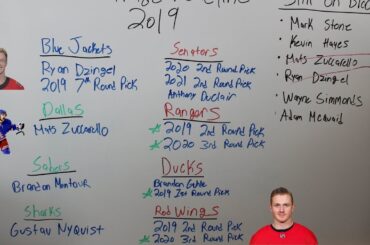 2019
Blue Jackets
Ryan Dzingel
2019 7th Round Pick
Dallas
Mats Zuccarello
Sabers
Brandon Montour
Sharks
Gustav Nyquist
Senators
2020 2nd Round Pick
2021 2nd Round Pick
Anthony Duclair
Rangers
2019 2nd Round Pick
2020 3rd Round Pick
Ducks
Brandon
2019 1st Round Pick
Red Wings
2019 2nd Round Pick
2020 3rd Round Pick
Still on Block
- Mark Stone
- Kevin Hayes
- Mats Zuccarello
- Ryan Dzingel
- Wayne Simmonds
- Adam McQuaid